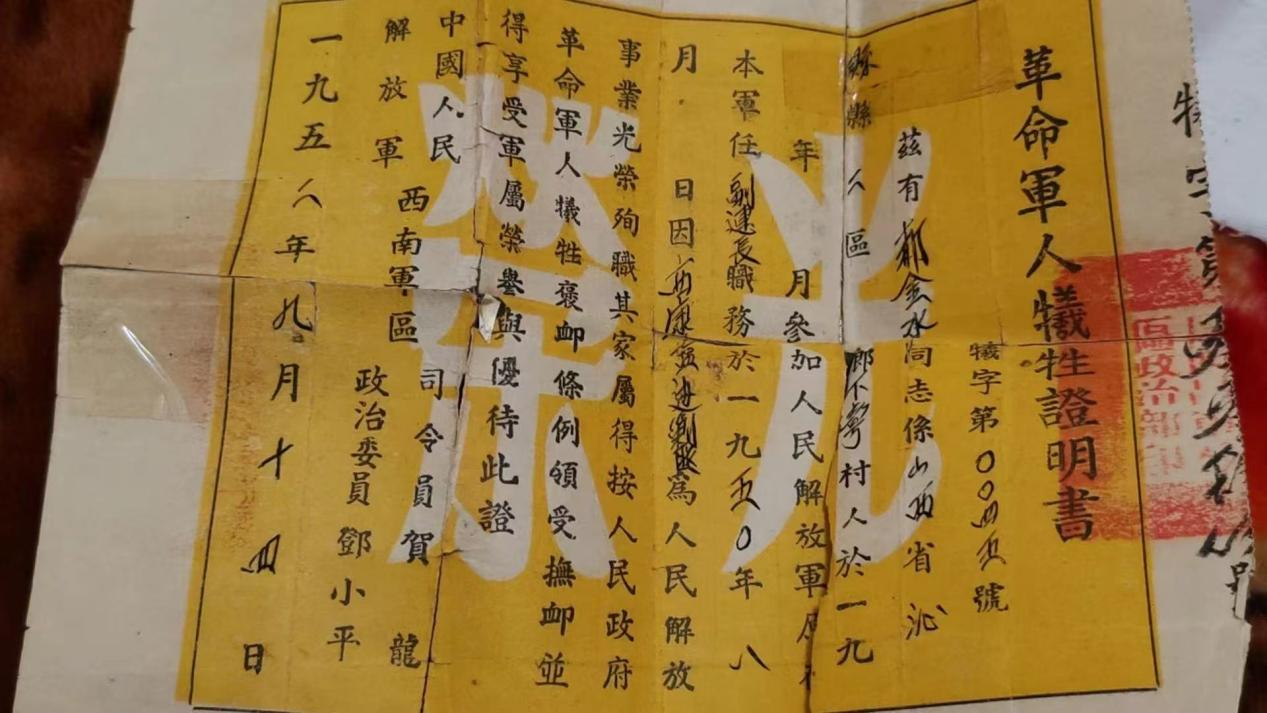 革命軍人犧牲證明書
犧字第〇〇四五號
茲有郝金水同志係山西省沁
縣區村人於一九
年 月參加人民解放軍
本軍任副連長職務於一九五〇年八
月 日因西康剿匪為人民解放
事業光榮殉職其家屬得按人民政府
革命軍人犧牲褒卹條例領受撫卹並
得享受軍屬榮譽與優待此證
中國人民
解放軍
西南軍區
司令員賀龍
政治委員鄧小平
一九五八年九月十四日
光榮
犧字第號
區政治部印